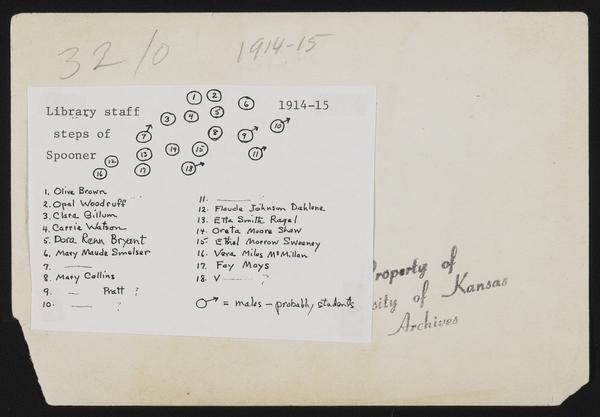 3210
1914-15
Library staff
steps of
Spooner
1914-15
1 2
3 4 5 6
7 8 9 10
12 13 14 15 11
16 17 18
1. Olive Brown
2. Opal Woodruff
3. Clara Gillum
4. Carrie Watson
5. Dora Renn Bryant
6. Mary Maude Smelser
7. ——
8. Mary Collins
9. — Pratt ?
10. —— ?
11. —— ?
12. Flauda Johnson Dahlene
13. Etta Smith Ragel
14. Oreta Moore Shaw
15. Ethel Morrow Sweaney
16. Vera Miles McMillen
17. Fay Moys
18. V—— ?
= males — probably students
Property of
sity of Kansas
Archives